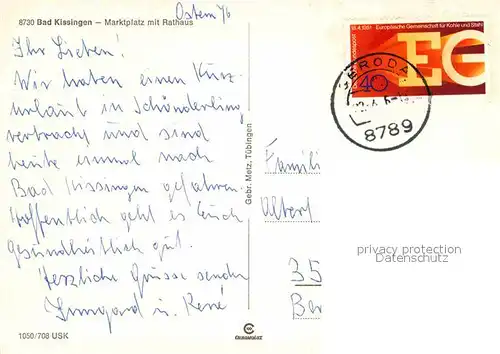 Ostern 76
8730 Bad Kissingen – Marktplatz mit Rathaus
Ihr Lieben!
Wir haben einen Kurz-
urlaub in Schönderling
verbracht und sind
heute einmal nach
Bad Kissingen gefahren.
Hoffentlich geht es Euch
gesundheitlich gut.
Herzliche Grüsse senden
Irmgard u. René
1050/708 USK
Gebr. Metz, Tübingen
18.4.1951 Europäische Gemeinschaft für Kohle und Stahl
40
EG
GERODA
8789
Famili
Albert
privacy protection
Datenschutz
35
Ber